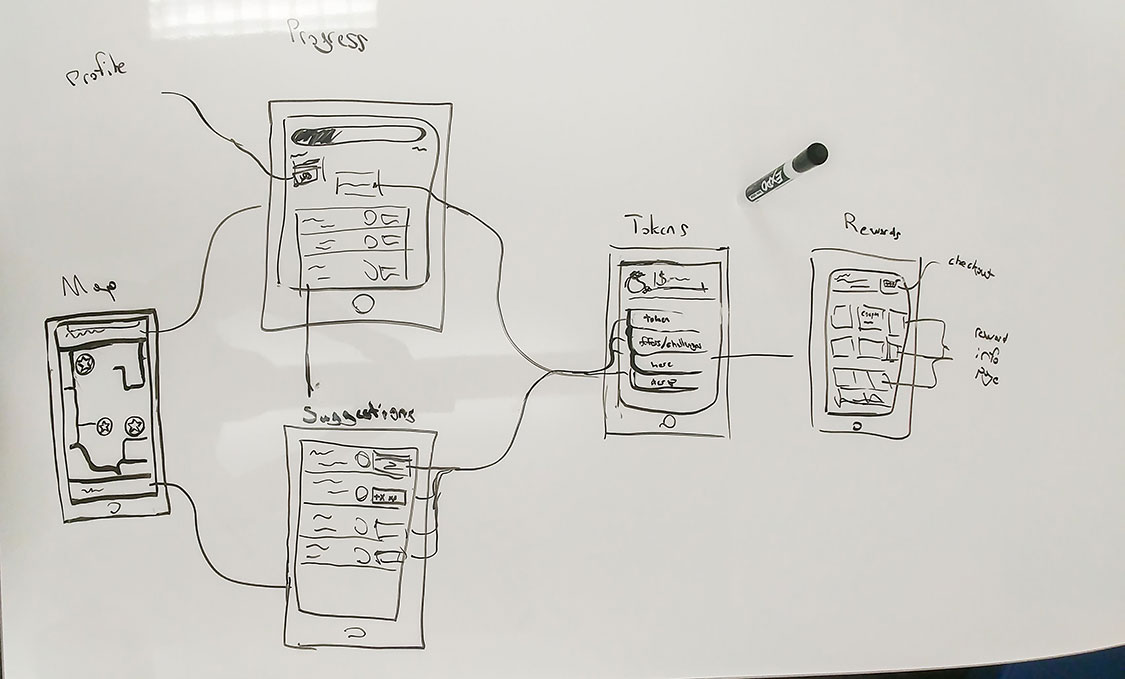 Progress
Profile
Map
Suggestions
+X XP
Tokens
$
token
offers/challenges
here
Rewards
checkout
Reward
info
page
EXPO